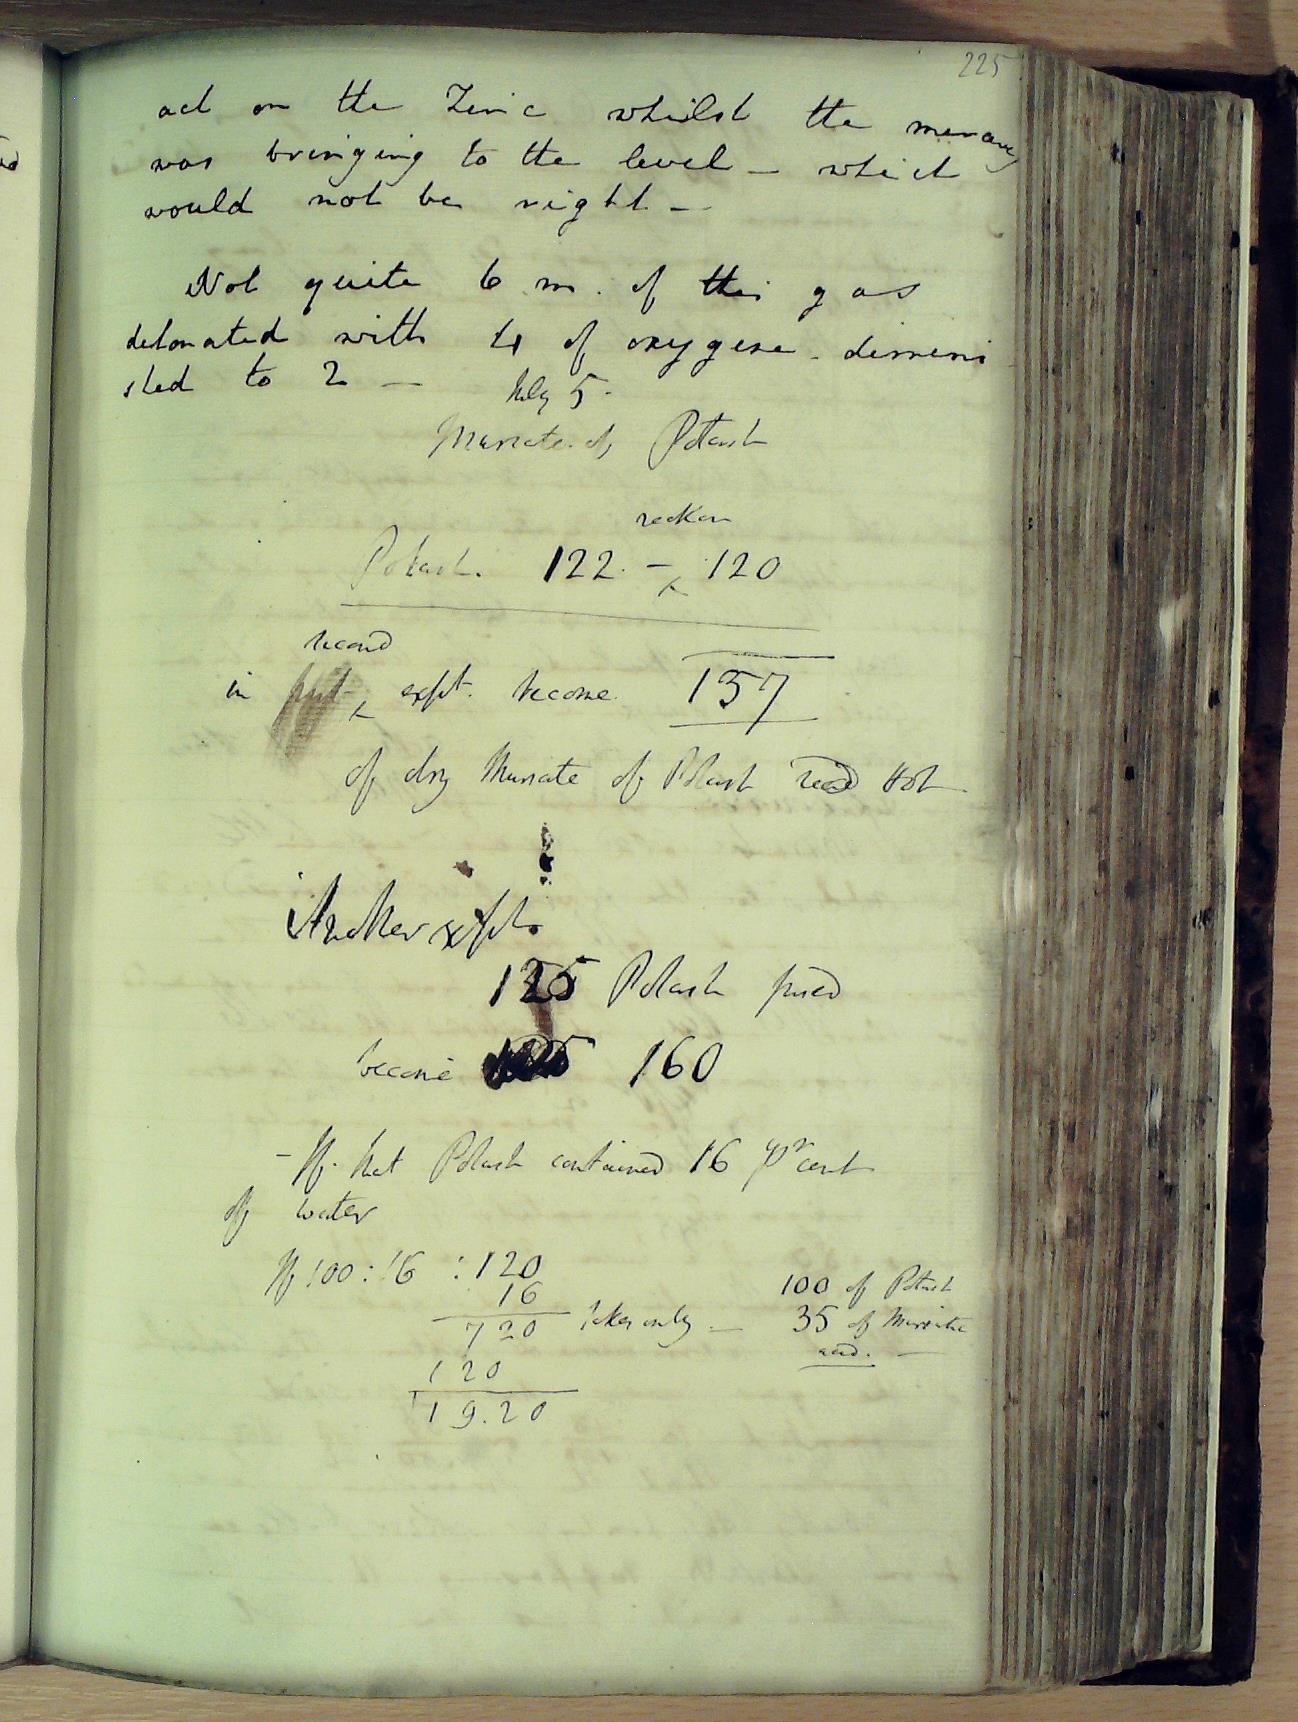 225
act on the Zinc whilst the mercury
was bringing to the level - which
would not be right -
Not quite 6 m. of this gas
detonated with 4 of oxygene - dimini
shed to 2 -
July 5.
Muriate of Potash
reckon
Potash. 122. - ‸ 120
second
in first ‸ expt. become 157
of dry Muriate of Potash read Hot
Another expt.
125 Potash fused
became 160
- If that Potash contained 16 pr cent
of water
If 100 : 16 : 120
16
720 takes only -
120
19.20
100 of Potash
35 of Muriatic
acid. -